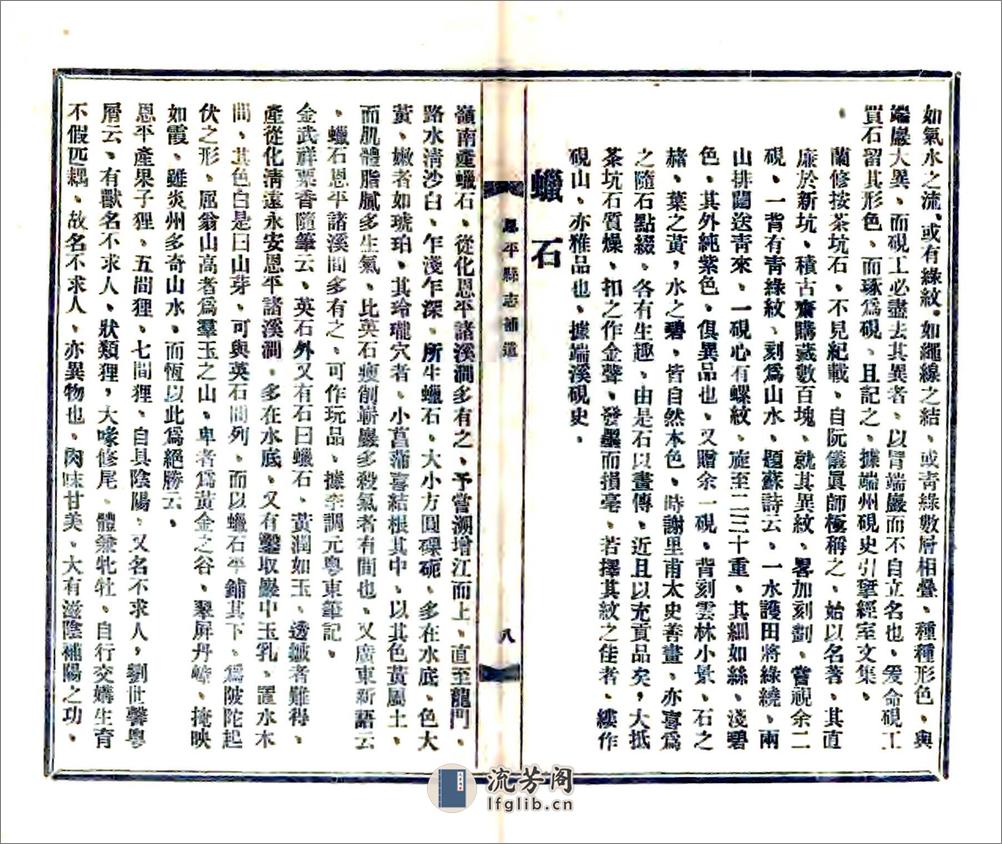 如氣水之流、或有綠紋、如繩線之結、或青綠數層相疊、種種形色、與
端巖大異、而硯工必盡去其異者、以冐端巖而不自立名也、爰命硯工
買石留其形色、而琢爲硯、且記之、據端州硯史引揅經室文集、
蘭修按茶坑石、不見紀載、自阮儀眞師極稱之、始以名著、其直
廉於新坑、積古齋購藏數百塊、就其異紋、畧加刻劃、嘗視余二
硯、一背有青綠紋、刻爲山水、題蘇詩云、一水護田將綠繞、兩
山排闥送青來、一硯心有螺紋、旋至二三十重、其細如絲、淺碧
色、其外純紫色、俱異品也、又贈余一硯、背刻雲林小景、石之
赭、葉之黃、水之碧、皆自然本色、時謝里甫太史善畫、亦喜爲
之隨石點綴、各有生趣、由是石以畫傳、近且以充貢品矣、大抵
茶坑石質燥、扣之作金聲、發墨而損毫、若擇其紋之佳者、縷作
硯山、亦雅品也、據端溪硯史、
蠟石
恩平縣志補遺
八
嶺南產蠟石、從化恩平諸溪澗多有之、予嘗溯增江而上、直至龍門、
路水淸沙白、乍淺乍深、所生蠟石、大小方圓磥砢、多在水底、色大
黃、嫩者如琥珀、其玲瓏穴者、小菖蒲喜結根其中、以其色黃屬土、
而肌體脂膩多生氣、比英石瘦削嶄巖多殺氣者有間也、又廣東新語云
、蠟石恩平諸溪間多有之、可作玩品、據李調元粵東筆記、
金武祥粟香隨筆云、英石外又有石曰蠟石、黃潤如玉、透皺者難得、
產從化淸遠永安恩平諸溪澗、多在水底、又有鑿取巖中玉乳、置水木
間、其色白是曰山芽、可與英石間列、而以蠟石平鋪其下、爲陂陀起
伏之形、屈翁山高者爲羣玉之山、卑者爲黃金之谷、翠屏丹嶂、掩映
如霞、雖炎州多奇山水、而恆以此爲絕勝云、
恩平產果子狸、五間狸、七間狸、自具陰陽、又名不求人、劉世馨粵
屑云、有獸名不求人、狀類狸、大喙修尾、體兼牝牡、自行交媾生育
不假匹耦、故名不求人、亦異物也、肉味甘美、大有滋陰補陽之功、
流芳阁
lfglib.cn